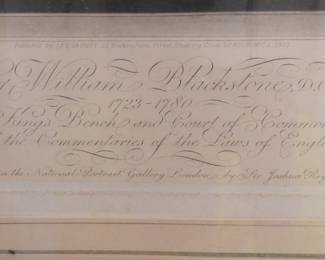 William Blackstone, D.C.
1723-1780
Kings Bench and Court of Common
the Commentaries of the Laws of Engl
in the National Portrait Gallery London, by Sir Joshua Rey